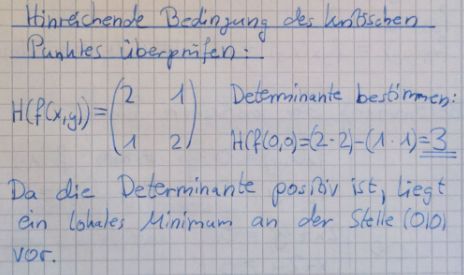 Hinreichende Bedingung des kritischen
Punktes überprüfen:
H(f(x,y)) = (2 1
1 2)
Determinante bestimmen:
H(f(0,0)=(2·2)-(1·1)=3
Da die Determinante positiv ist, liegt
ein lokales Minimum an der Stelle (0|0)
vor.